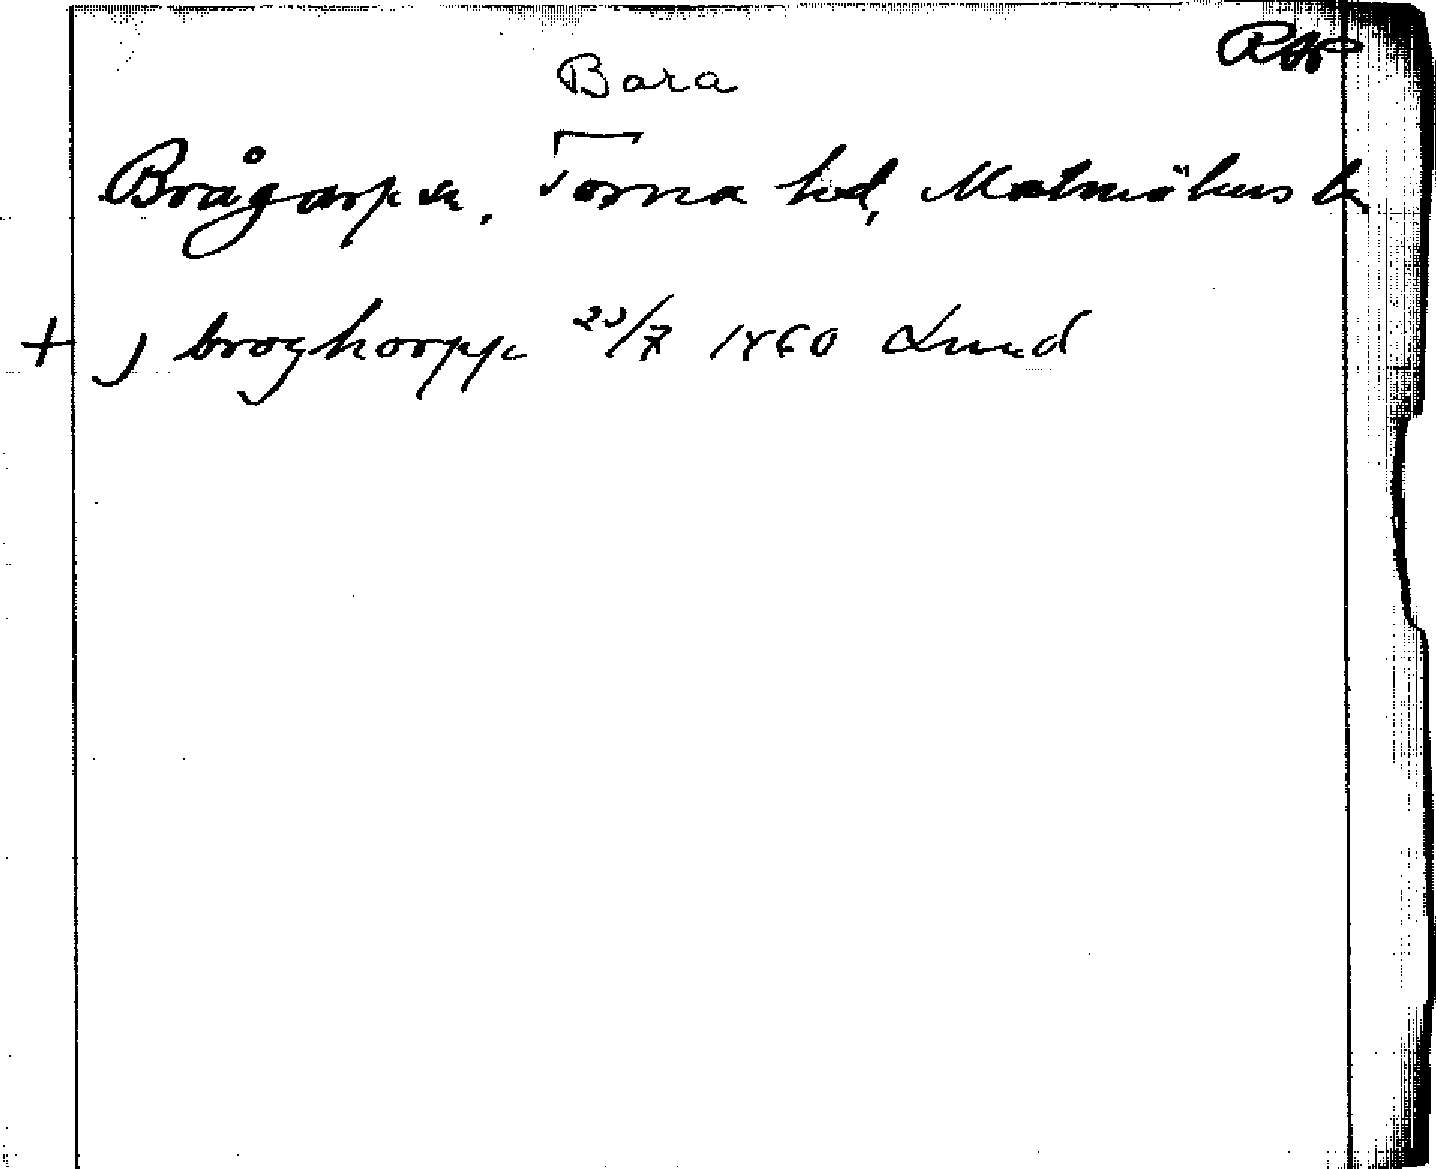 RAP
Bara
Brågarp sn, Torna hd, Malmöhus l.
+ J broghorpp 20/7 1460 Lund